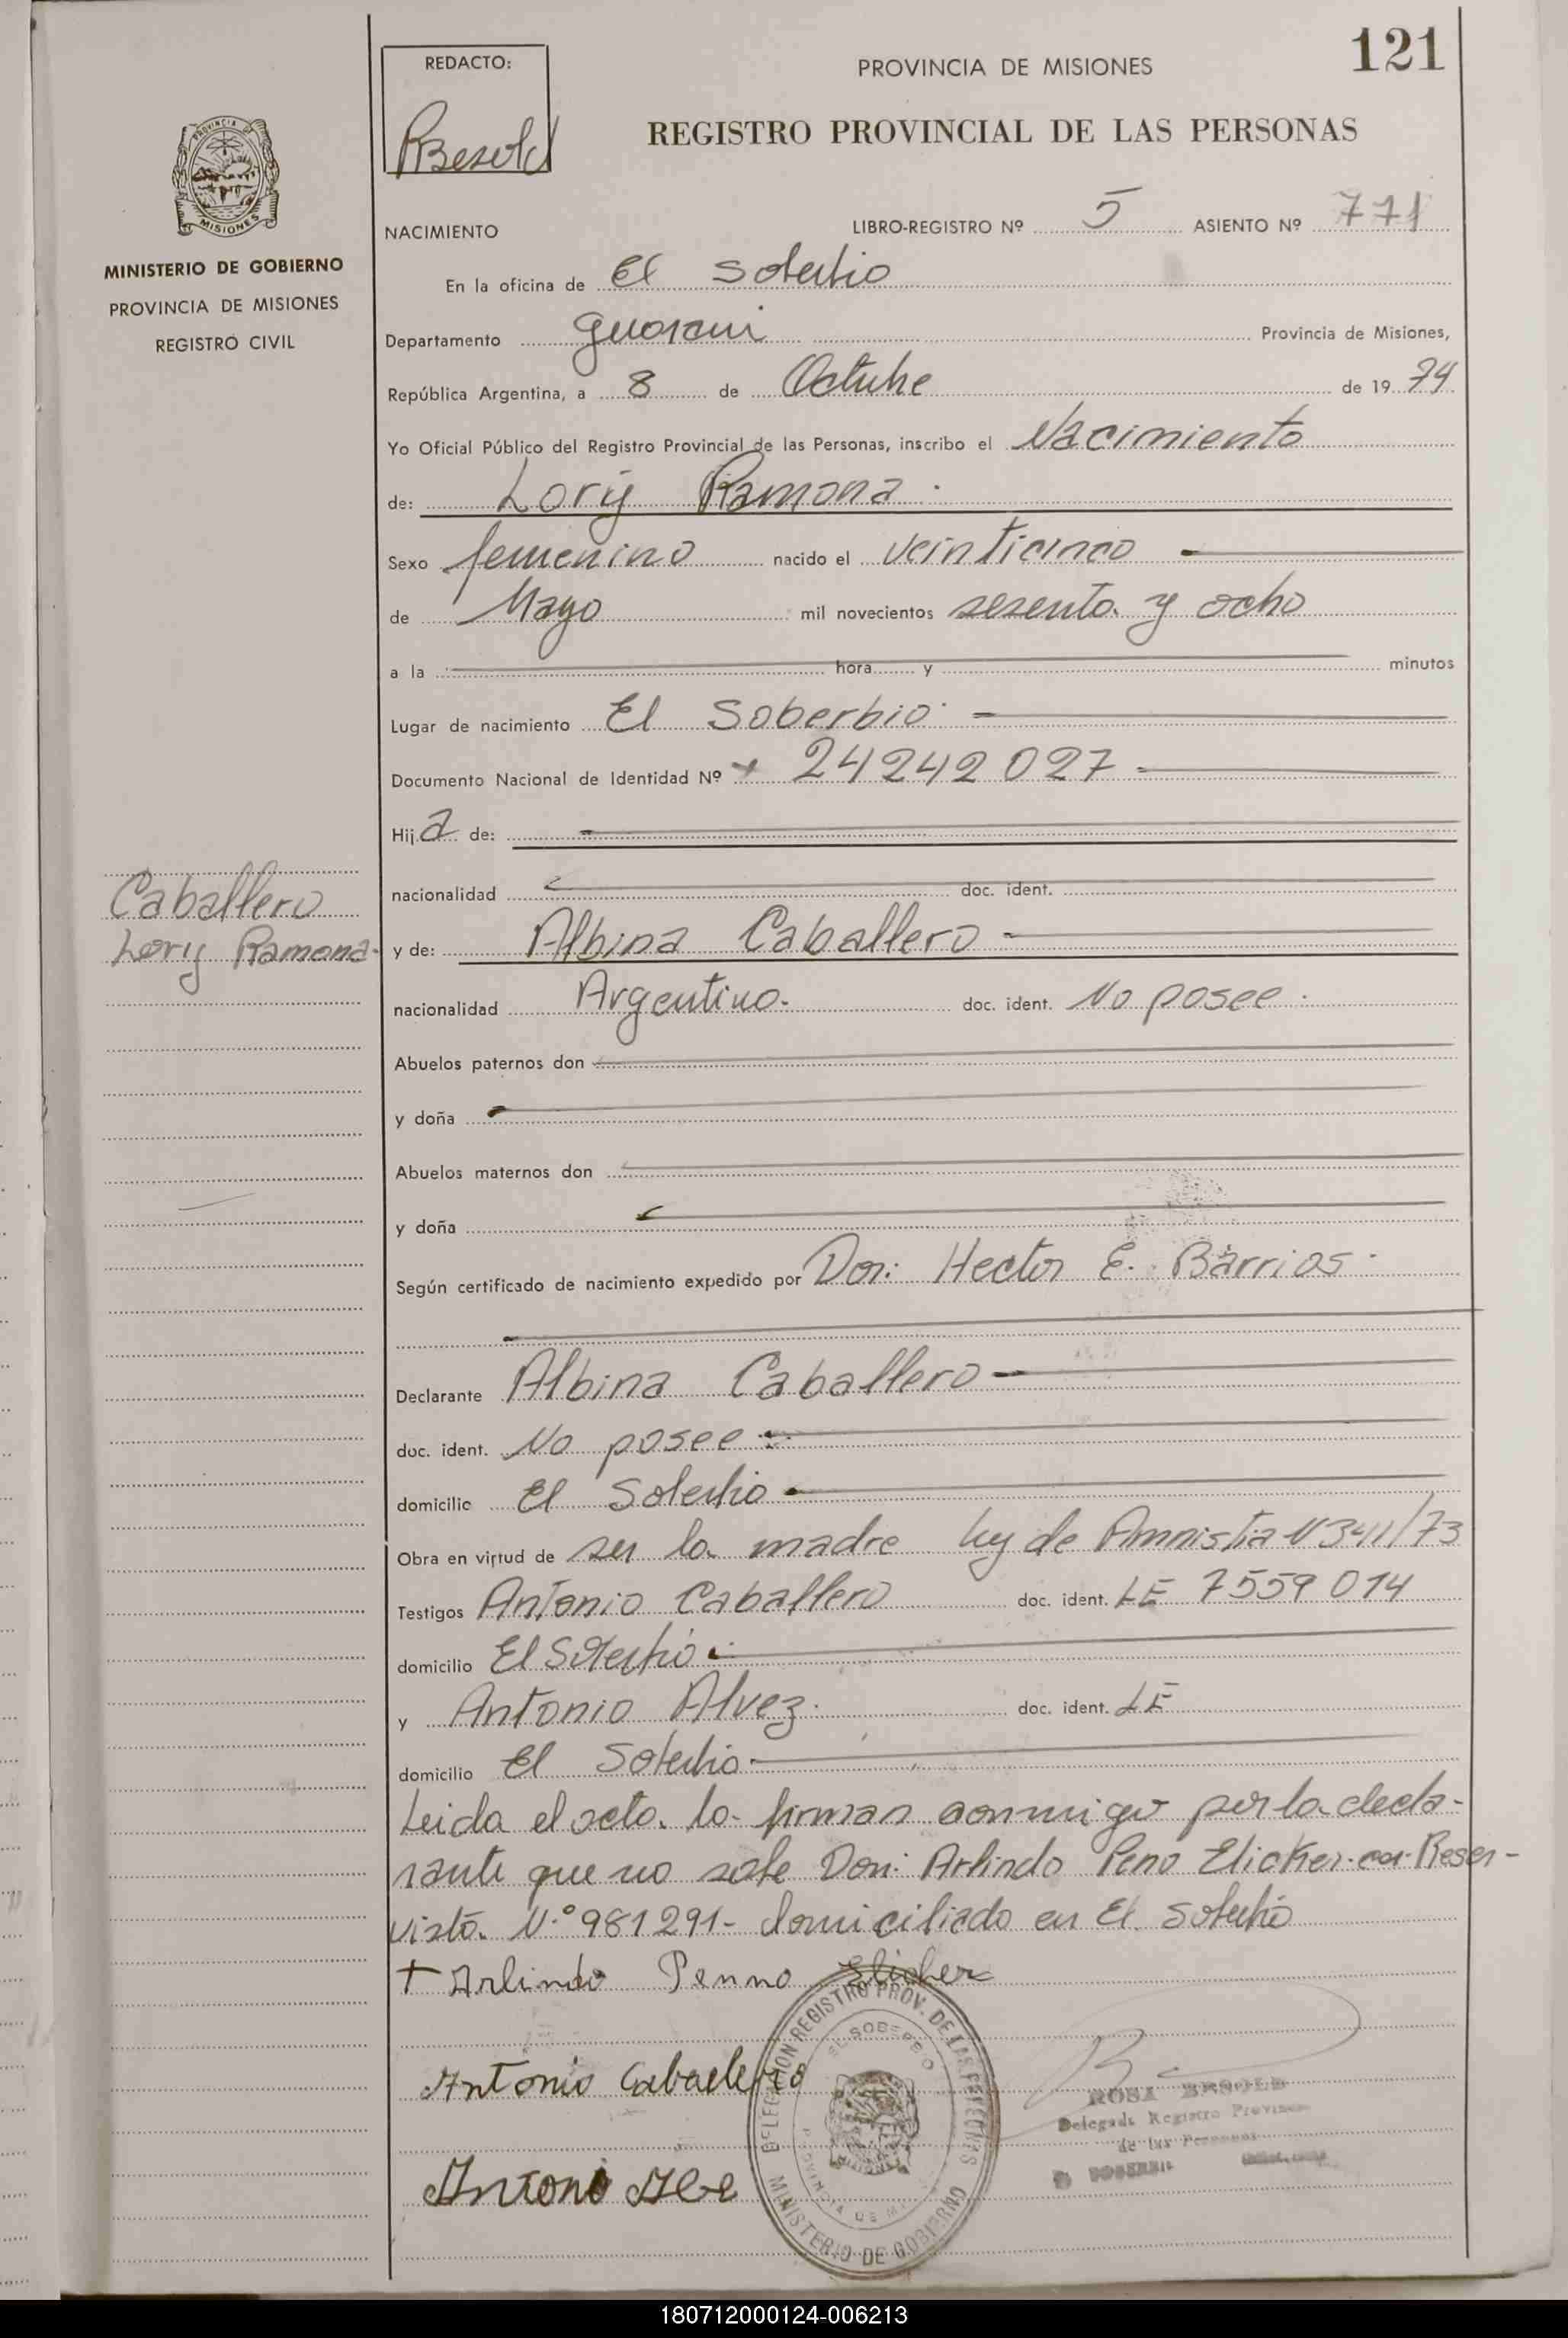 121
REDACTO:
RBesold
PROVINCIA DE MISIONES
REGISTRO PROVINCIAL DE LAS PERSONAS
PROVINCIA DE
MISIONES
MINISTERIO DE GOBIERNO
PROVINCIA DE MISIONES
REGISTRO CIVIL
NACIMIENTO
LIBRO-REGISTRO Nº 5 ASIENTO Nº 771
En la oficina de El Soberbio
Departamento Guarani Provincia de Misiones,
República Argentina, a 8 de Octubre de 1974
Yo Oficial Público del Registro Provincial de las Personas, inscribo el Nacimiento
de: Lory Ramona.
Sexo femenino nacido el veinticinco
de Mayo mil novecientos sesenta y ocho
a la hora y minutos
Lugar de nacimiento El Soberbio
Documento Nacional de Identidad Nº 24242027
Hija de:
nacionalidad doc. ident.
Caballero
Lory Ramona.
y de: Albina Caballero
nacionalidad Argentina. doc. ident. No posee.
Abuelos paternos don
y doña
Abuelos maternos don
y doña
Según certificado de nacimiento expedido por Don: Hector E. Barrios.
Declarante Albina Caballero
doc. ident. No posee
domicilio El Soberbio
Obra en virtud de ser la madre Ley de Amnistia N 341/73
Testigos Antonio Caballero doc. ident. LE 7559014
domicilio El Soberbio
y Antonio Alvez. doc. ident. LE
domicilio El Soberbio
Leida el acta. la firman conmigo por la decla-
rante que no sabe Don: Arlindo Peno Elicker. con Reser-
vista. N.º 981291- domiciliado en El Soberbio
+ Arlindo Penno Elicker
Antonio Caballero
Antoni
DELEGACION REGISTRO PROV. DE LAS PERSONAS
EL SOBERBIO
PROVINCIA DE
MINISTERIO DE GOBIERNO
ROSA BESOLD
Delegada Registro Provincial
de las Personas
EL SOBERBIO
180712000124-006213